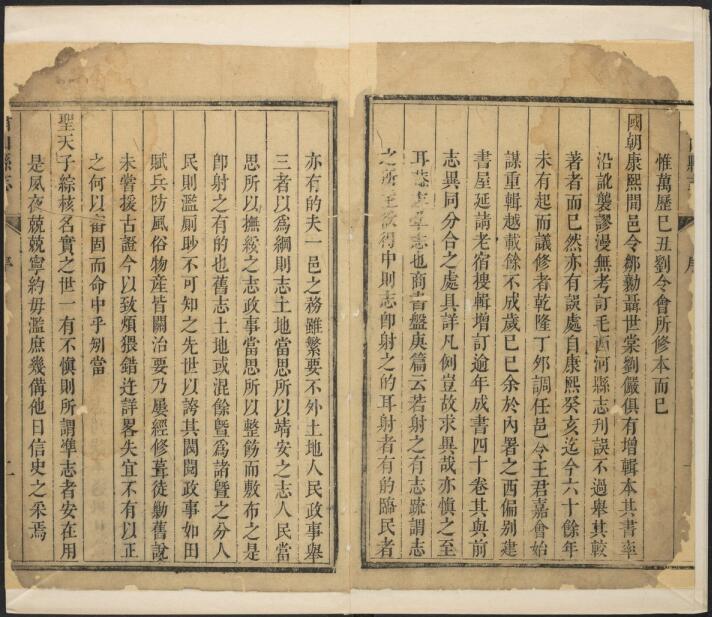 惟萬歷己丑劉令會所修本而已
國朝康熙間邑令鄒勷聶世棠劉儼俱有增輯本其書率
沿訛襲謬漫無考訂毛西河縣志刋誤不過舉其較
著者而已然亦有誤處自康熙癸亥迄今六十餘年
未有起而議修者乾隆丁夘調任邑令王君嘉會始
謀重輯越載餘不成歲己巳余於内署之西偏别建
書屋延請老宿搜輯增訂逾年成書四十卷其與前
志異同分合之處具詳凡例豈故求異哉亦愼之至
耳 志也商書盤庚篇云若射之有志疏謂志
之所主欲得中則志卽射之的耳射者有的臨民者
亦有的夫一邑之務雖繁要不外土地人民政事舉
三者以爲綱則志土地當思所以靖安之志人民當
思所以撫綏之志政事當思所以整飭而敷布之是
卽射之有的也舊志土地或混餘曁爲諸曁之分人
民則濫厠眇不可知之先世以誇其閥閱政事如田
賦兵防風俗物産皆關治要乃屢經修葺徒勦舊說
未嘗援古證今以致煩猥錯迕詳畧失宜不有以正
之何以審固而命中乎矧當
聖天子綜核名實之世一有不愼則所謂凖志者安在用
是夙夜兢兢寧約毋濫庶幾備他日信史之采焉
山縣志
序
二
縣
序